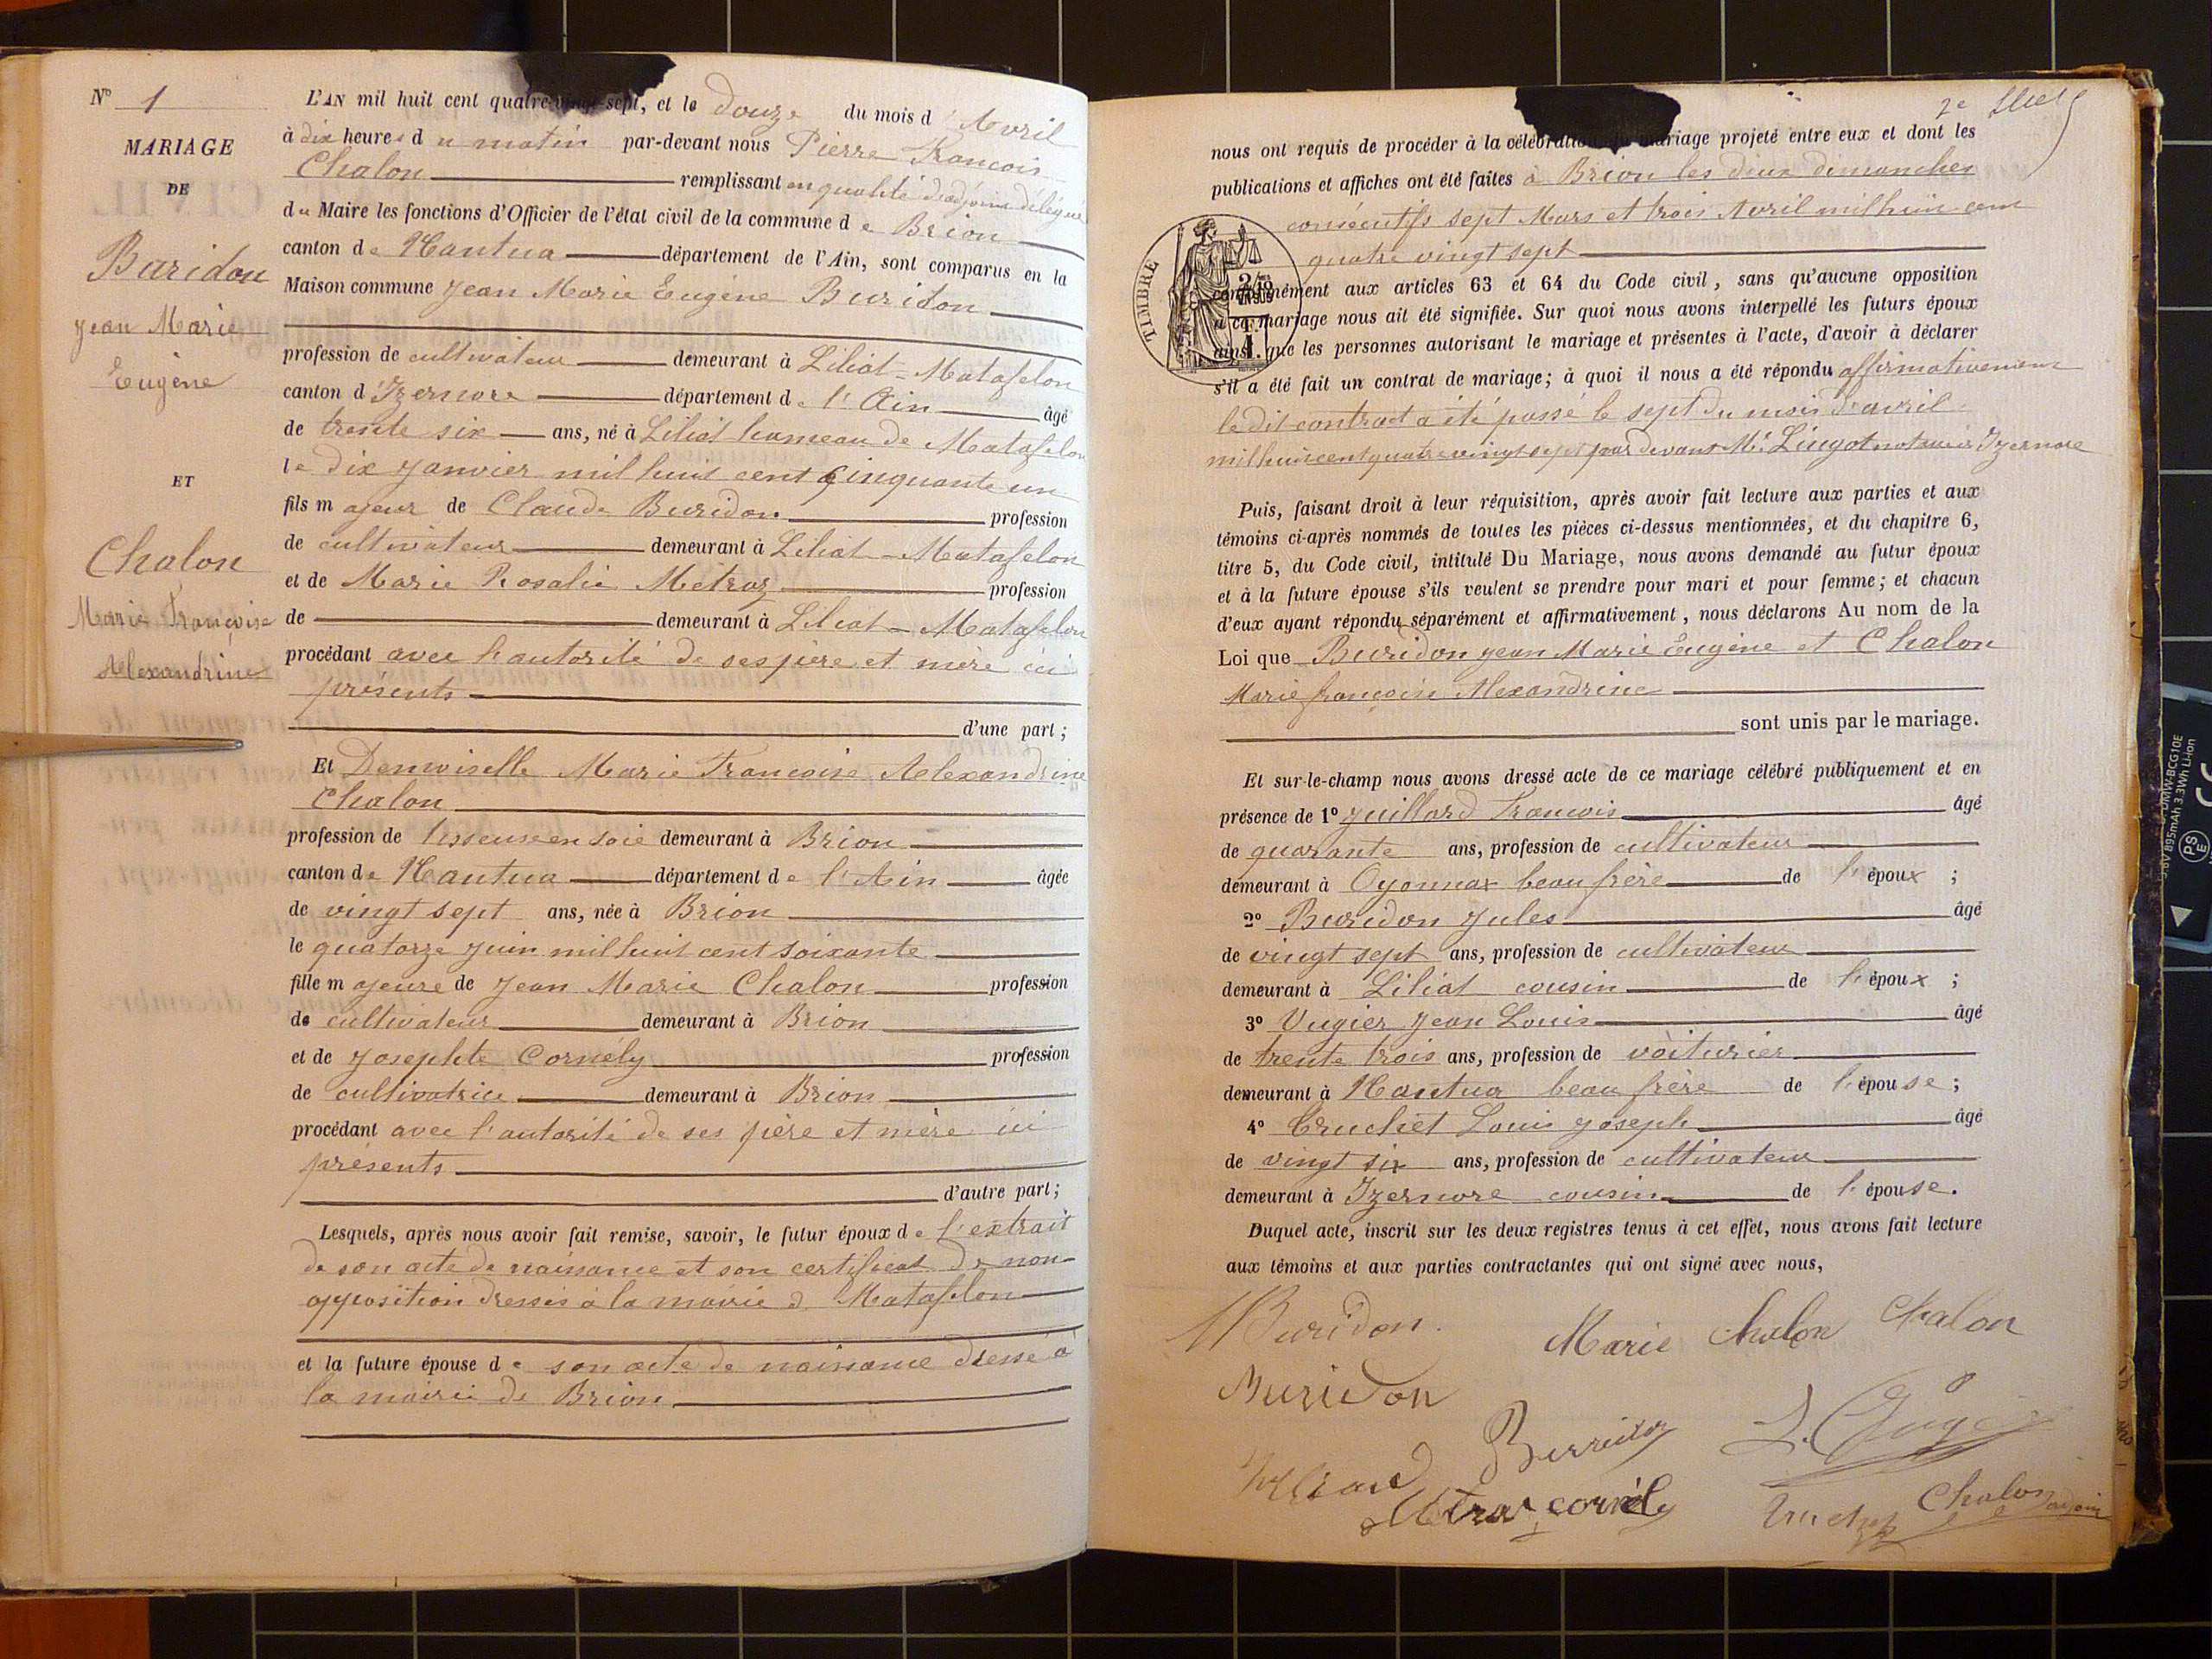 Nº 1
MARIAGE
DE
Buridon
Jean Marie
Eugène
ET
Chalon
Marie Françoise
Alexandrine
L'AN mil huit cent quatre-vingt-sept, et le Douze du mois d'Avril
à dix heures du matin par-devant nous Pierre François
Chalon remplissant en qualité d'adjoint délégué
du Maire les fonctions d'Officier de l'état civil de la commune de Brion
canton de Nantua département de l'Ain, sont comparus en la
Maison commune Jean Marie Eugène Buridon
profession de cultivateur demeurant à Liliat-Matafelon
canton d'Izernore département de l'Ain âgé
de trente six ans, né à Liliat hameau de Matafelon
le dix Janvier mil huit cent cinquante un
fils majeur de Claude Buridon profession
de cultivateur demeurant à Liliat-Matafelon
et de Marie Rosalie Métraz profession
de demeurant à Liliat-Matafelon
procédant avec l'autorité de ses père et mère ici
présents
d'une part;
Et Demoiselle Marie Françoise Alexandrine
Chalon
profession de tisseuse en soie demeurant à Brion
canton de Nantua département de l'Ain âgée
de vingt sept ans, née à Brion
le quatorze juin mil huit cent soixante
fille majeure de Jean Marie Chalon profession
de cultivateur demeurant à Brion
et de Josephte Cornély profession
de cultivatrice demeurant à Brion
procédant avec l'autorité de ses père et mère ici
présents
d'autre part;
Lesquels, après nous avoir fait remise, savoir, le futur époux de l'extrait
de son acte de naissance et son certificat de non
opposition dressés à la mairie d. Matafelon
et la future épouse de son acte de naissance dressé à
la mairie de Brion
2e
nous ont requis de procéder à la célébration du mariage projeté entre eux et dont les
publications et affiches ont été faites à Brion les deux dimanches
consécutifs sept Mars et trois Avril mil huit cent
quatre vingt sept
TIMBRE
conformément aux articles 63 et 64 du Code civil, sans qu'aucune opposition
à ce mariage nous ait été signifiée. Sur quoi nous avons interpellé les futurs époux
ainsi que les personnes autorisant le mariage et présentes à l'acte, d'avoir à déclarer
s'il a été fait un contrat de mariage; à quoi il nous a été répondu affirmativement
le dit contract a été passé le sept du mois d'avril
mil huit cent quatre vingt sept par devant Me. Lingot notaire à Izernore
Puis, faisant droit à leur réquisition, après avoir fait lecture aux parties et aux
témoins ci-après nommés de toutes les pièces ci-dessus mentionnées, et du chapitre 6,
titre 5, du Code civil, intitulé Du Mariage, nous avons demandé au futur époux
et à la future épouse s'ils veulent se prendre pour mari et pour femme; et chacun
d'eux ayant répondu séparément et affirmativement, nous déclarons Au nom de la
Loi que Buridon Jean Marie Eugène et Chalon
Marie françoise Alexandrine
sont unis par le mariage.
Et sur-le-champ nous avons dressé acte de ce mariage célébré publiquement et en
présence de 1º Juillard François âgé
de quarante ans, profession de cultivateur
demeurant à Oyonnax beau frère de l'époux ;
2º Buridon Jules âgé
de vingt sept ans, profession de cultivateur
demeurant à Liliat cousin de l'époux ;
3º Vugier Jean Louis âgé
de trente trois ans, profession de voiturier
demeurant à Nantua beau frère de l'épouse ;
4º Truchet Louis Joseph âgé
de vingt six ans, profession de cultivateur
demeurant à Izernore cousin de l'épouse.
Duquel acte, inscrit sur les deux registres tenus à cet effet, nous avons fait lecture
aux témoins et aux parties contractantes qui ont signé avec nous,
Buridon. Marie Chalon Chalon
Buridon
Métraz cornély Truchet Chalon adjoint
DMW-BCG10E
3.6V 895mAh 3.3Wh Li-ion
PS
E